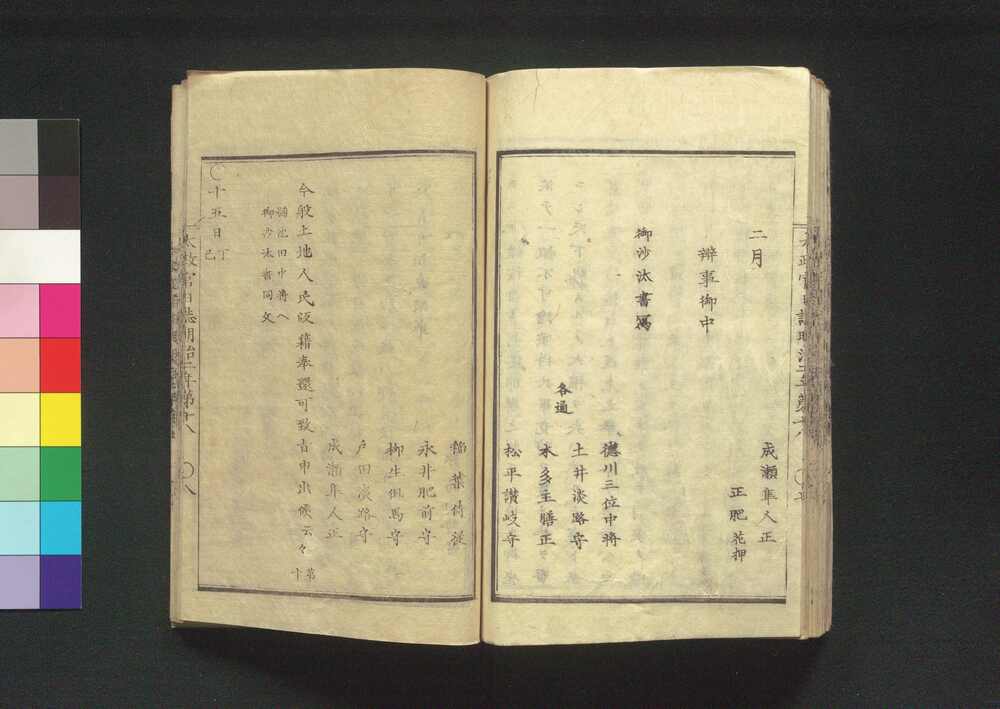 成瀬隼人正
正肥花押
二月
辨事御中
御沙汰書寫
徳川三位中將
各通
土井淡路守
本多主膳正
松平讃岐守
稲葉侍従
永井肥前守
柳生但馬守
戸田淡路守
成瀬隼人正
今般上地人民版籍奉還可致旨申出候云々
第十
池田中將ヘ
御沙汰書同文
○十五日丁巳
太政官日誌明治二年第十八
○八